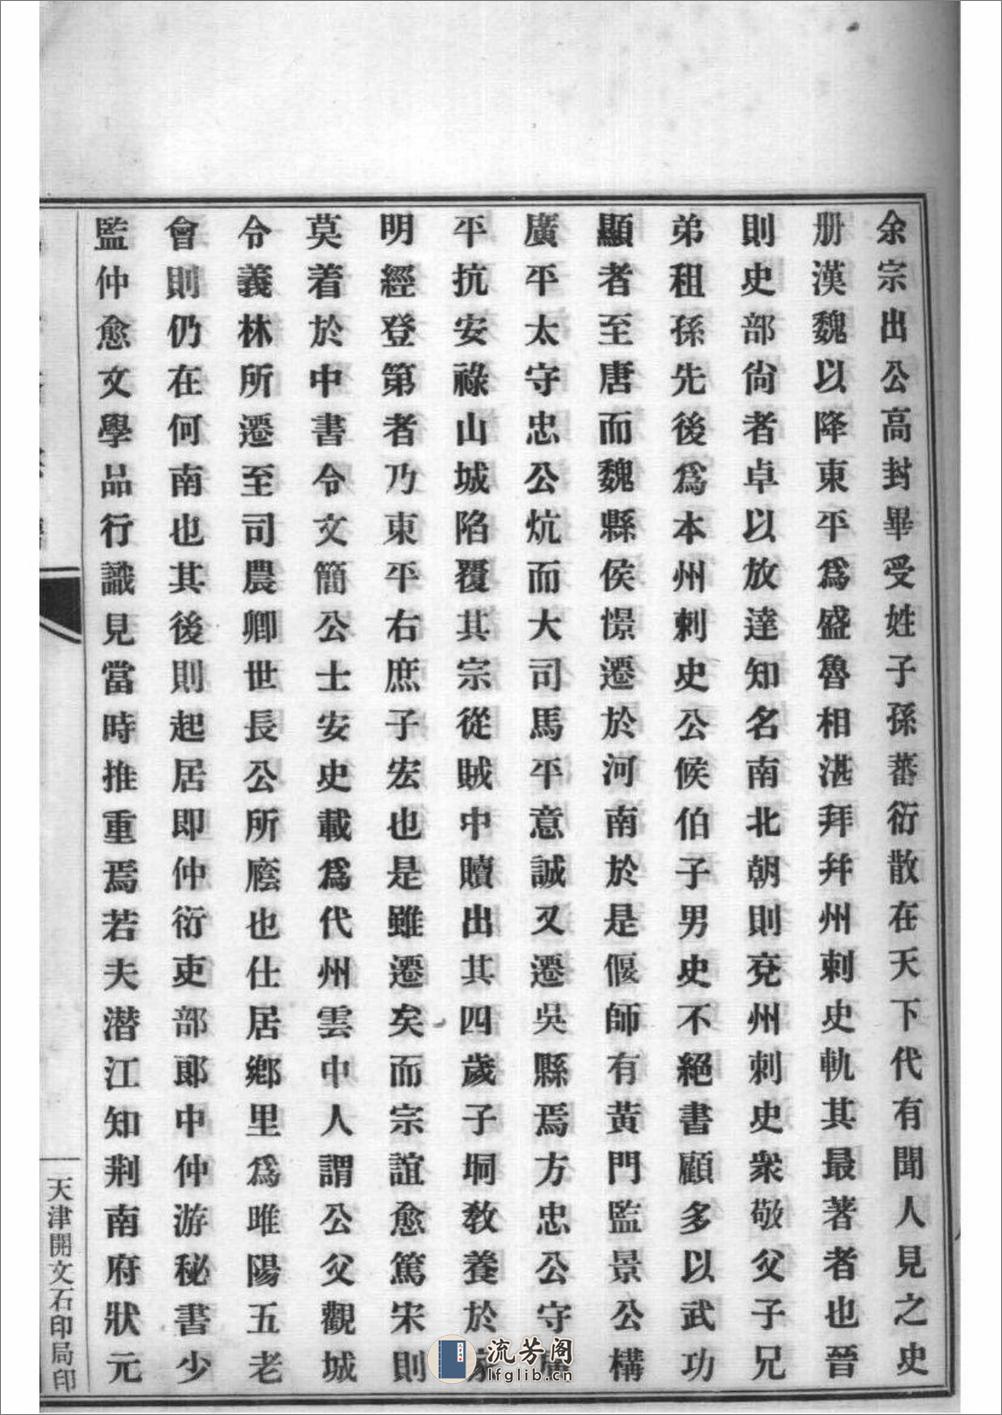 余宗出公高封畢受姓子孫蕃衍散在天下代有聞人見之史
册漢魏以降東平爲盛魯相湛拜幷州刺史軌其最著者也晉
則史部尙者卓以放達知名南北朝則兗州刺史衆敬父子兄
弟租孫先後爲本州刺史公候伯子男史不絕書顧多以武功
顯者至唐而魏縣侯憬遷於河南於是偃師有黃門監景公構
廣平太守忠公炕而大司馬平意誠又遷吳縣焉方忠公守廣
平抗安祿山城陷覆其宗從賊中贖出其四歲子坰敎養於
明經登第者乃東平右庶子宏也是雖遷矣而宗誼愈篤宋則
莫着於中書令文簡公士安史載爲代州雲中人謂公父觀城
令義林所遷至司農卿世長公所廕也仕居鄕里爲睢陽五老
會則仍在何南也其後則起居卽仲衍吏部郞中仲游秘書少
監仲愈文學品行識見當時推重焉若夫潜江知荆南府狀元
天津開文石印局印
流芳阁
lfglib.cn